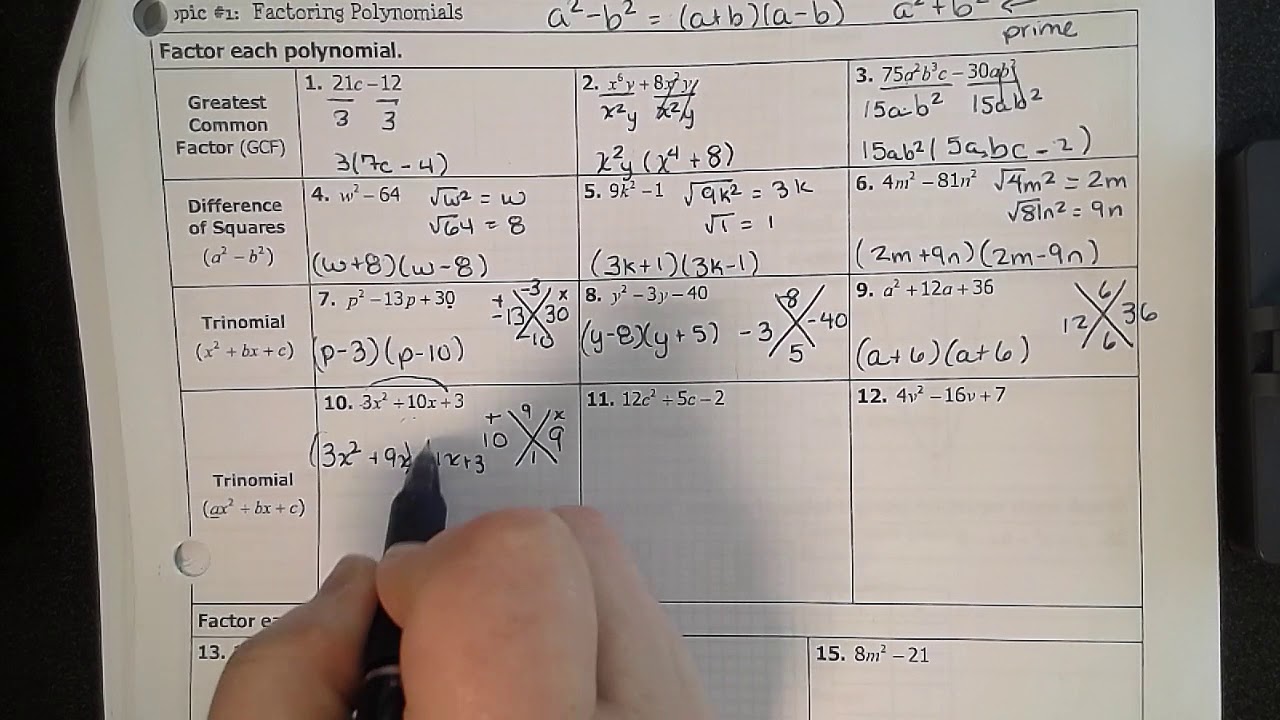 opic #1: Factoring Polynomials
a² – b² = (a+b)(a-b)
a² + b²
prime
Factor each polynomial.
Greatest
Common
Factor (GCF)
1. 21c – 12
3 3
3(7c – 4)
2. x⁶y + 8x²y
x²y x²y
x²y (x⁴ + 8)
3. 75a²b³c – 30ab²
15ab² 15ab²
15ab² ( 5abc – 2 )
Difference
of Squares
(a² – b²)
4. w² – 64 √w² = w
√64 = 8
(w+8)(w-8)
5. 9k² – 1 √9k² = 3k
√1 = 1
(3k+1)(3k-1)
6. 4m² – 81n² √4m² = 2m
√81n² = 9n
(2m+9n)(2m-9n)
Trinomial
(x² + bx + c)
7. p² – 13p + 30
+ -3 x
-13 30
-10
(p-3)(p-10)
8. y² – 3y – 40
-8
-3 -40
5
(y-8)(y+5)
9. a² + 12a + 36
6
12 36
6
(a+6)(a+6)
Trinomial
(ax² + bx + c)
10. 3x² + 10x + 3
+ 9 x
10 9
1
(3x² + 9x) 1x+3
11. 12c² + 5c – 2
12. 4v² – 16v + 7
Factor
13.
15. 8m² – 21